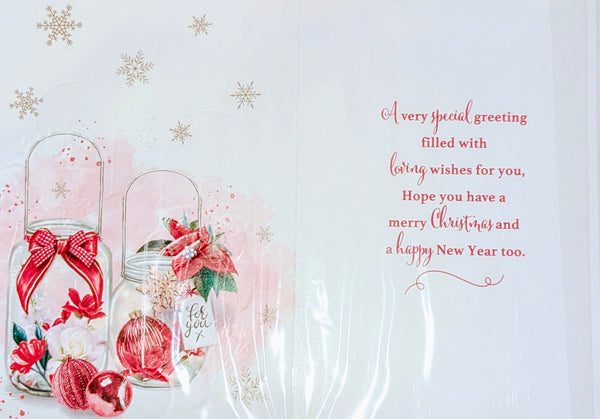 for
you
x
A very special greeting
filled with
loving wishes for you,
Hope you have a
merry Christmas and
a happy New Year too.